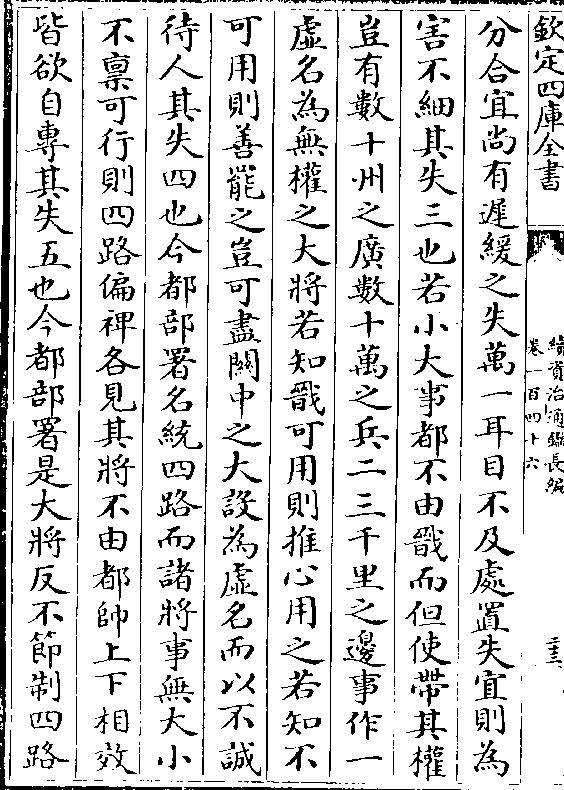 欽定四庫全書
續資治通鑑長編
卷一百四十六
二十三
分合宜尚有遲緩之失萬一耳目不及處置失宜則為
害不細其失三也若小大事都不由戩而但使帶其權
豈有數十州之廣數十萬之兵二三千里之邊事作一
虛名為無權之大將若知戩可用則推心用之若知不
可用則善罷之豈可盡關中之大設為虛名而以不誠
待人其失四也今都部署名統四路而諸將事無大小
不禀可行則四路偏禆各見其將不由都帥上下相效
皆欲自專其失五也今都部署是大將反不節制四路